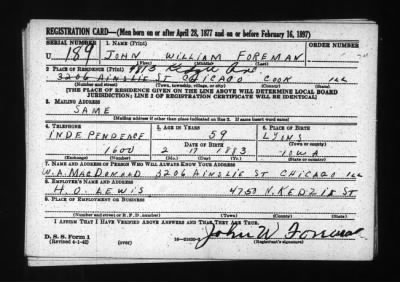 REGISTRATION CARD—(Men born on or after April 28, 1877 and on or before February 16, 1897)
SERIAL NUMBER 1. NAME (Print) ORDER NUMBER
U 189 JOHN WILLIAM FOREMAN
(First) (Middle) (Last)
2. PLACE OF RESIDENCE (Print) 4813
3206 AINSLIE ST CHICAGO COOK ILL
(Number and street) (Town, township, village, or city) (County) (State)
[THE PLACE OF RESIDENCE GIVEN ON THE LINE ABOVE WILL DETERMINE LOCAL BOARD
JURISDICTION; LINE 2 OF REGISTRATION CERTIFICATE WILL BE IDENTICAL]
3. MAILING ADDRESS
SAME
[Mailing address if other than place indicated on line 2. If same insert word same]
4. TELEPHONE 5. AGE IN YEARS 6. PLACE OF BIRTH
INDEPENDENCE 59 LYONS
DATE OF BIRTH (Town or county)
1600 2 17 1883 IOWA
(Exchange) (Number) (Mo.) (Day) (Yr.) (State or country)
7. NAME AND ADDRESS OF PERSON WHO WILL ALWAYS KNOW YOUR ADDRESS
W.A. MACDONALD 3206 AINSLIE ST CHICAGO ILL
8. EMPLOYER'S NAME AND ADDRESS
H.O. LEWIS 4750 N. KEDZIE ST
9. PLACE OF EMPLOYMENT OR BUSINESS
(Number and street or R. F. D. number) (Town) (County) (State)
I AFFIRM THAT I HAVE VERIFIED ABOVE ANSWERS AND THAT THEY ARE TRUE.
D. S. S. Form 1 John W Foreman
(Revised 4-1-42) (over) (Registrant's signature)